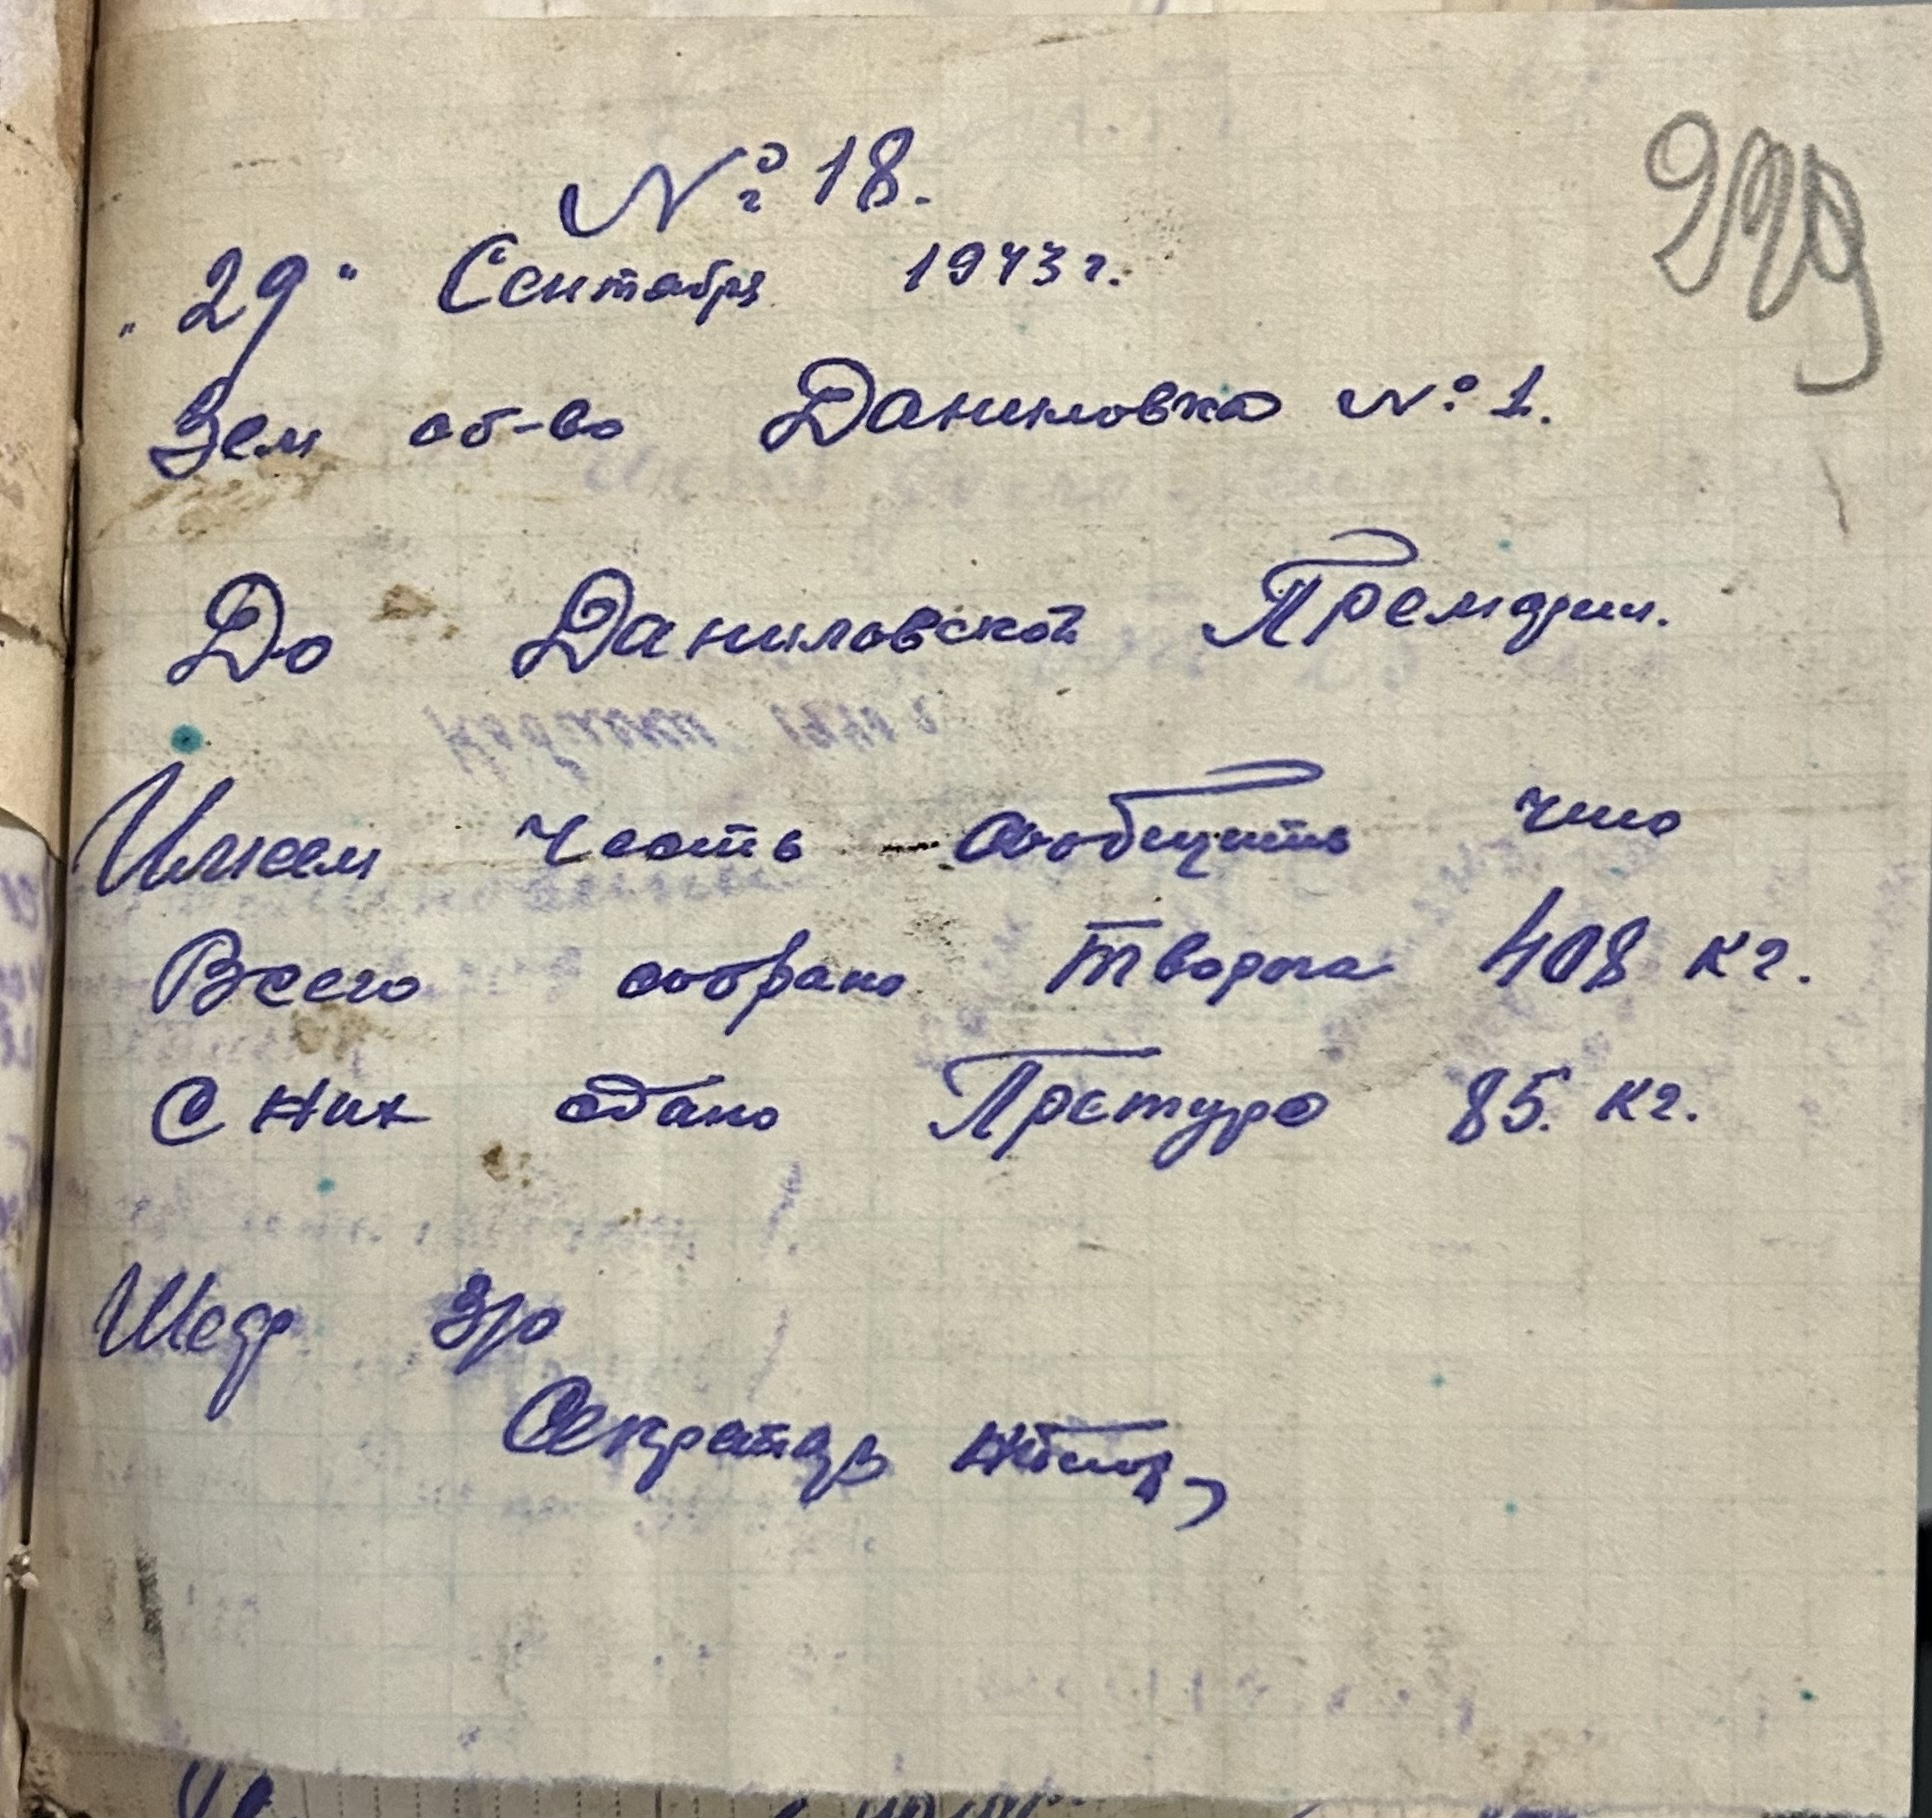 229
№ 18.
"29" Сентября 1943 г.
Зем об-во Даниловка № 1.
До Даниловской Премарии.
Имеем Честь сообщить что
Всего собрано творога 408 кг.
С них сдано Претуро 85. кг.
Шеф
Секретарь